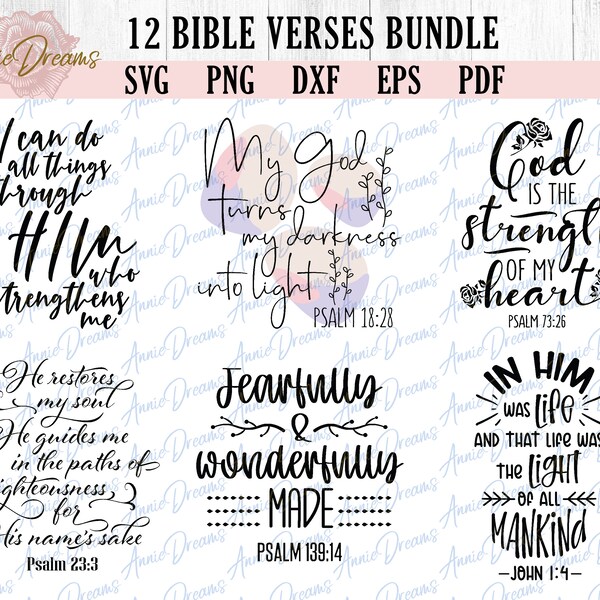 nnieDreams
12 BIBLE VERSES BUNDLE
SVG PNG DXF EPS PDF
I can do
all things
hrough
HIM
who
trengthens
me
My God
turns
my darkness
into light
PSALM 18:28
God
IS THE
strengt
OF MY
heart
PSALM 73:26
He restores
my soul
He guides me
in the paths of
ighteousness
for
His name's sake
Psalm 23:3
Fearfully
&
wonderfully
MADE
PSALM 139:14
IN HIM
WAS LIFE
AND THAT LIFE WAS
THE LIGHT
OF ALL
MANKIND
JOHN 1:4
Annie Dreams